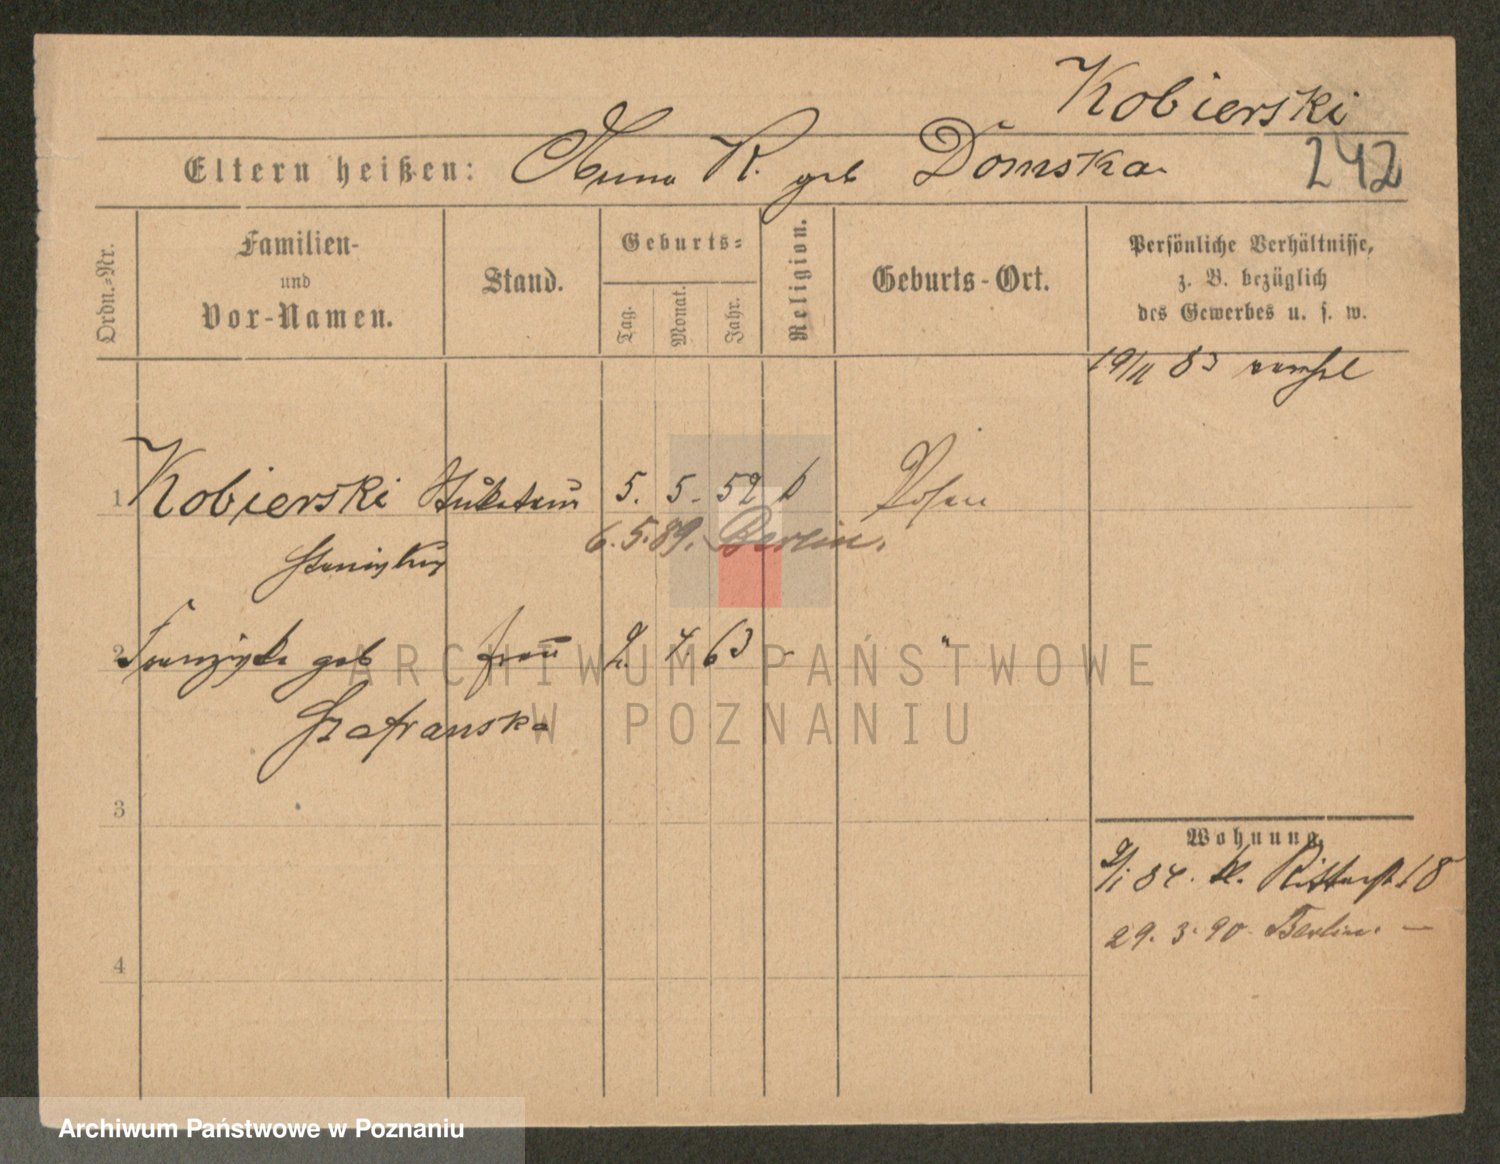 Kobierski
Eltern heißen: Anna K. geb Domska
242
Ordn.-Nr.
Familien-
und
Vor-Namen.
Stand.
Geburts-
Tag.
Monat.
Jahr.
Religion.
Geburts-Ort.
Persönliche Verhältnisse,
z. B. bezüglich
des Gewerbes u. s. w.
19/11 83
1 Kobierski Stukateur 5. 5. 52 k Posen
Stanislaus
6. 5. 89. Berlin.
2 Franziska geb Frau 2. 7. 63 "
Szafranska
3
Wohnung.
9/1 84. kl. Ritterstr 18
29. 3. 90 Berlin. —
4
ARCHIWUM PAŃSTWOWE
W POZNANIU
Archiwum Państwowe w Poznaniu